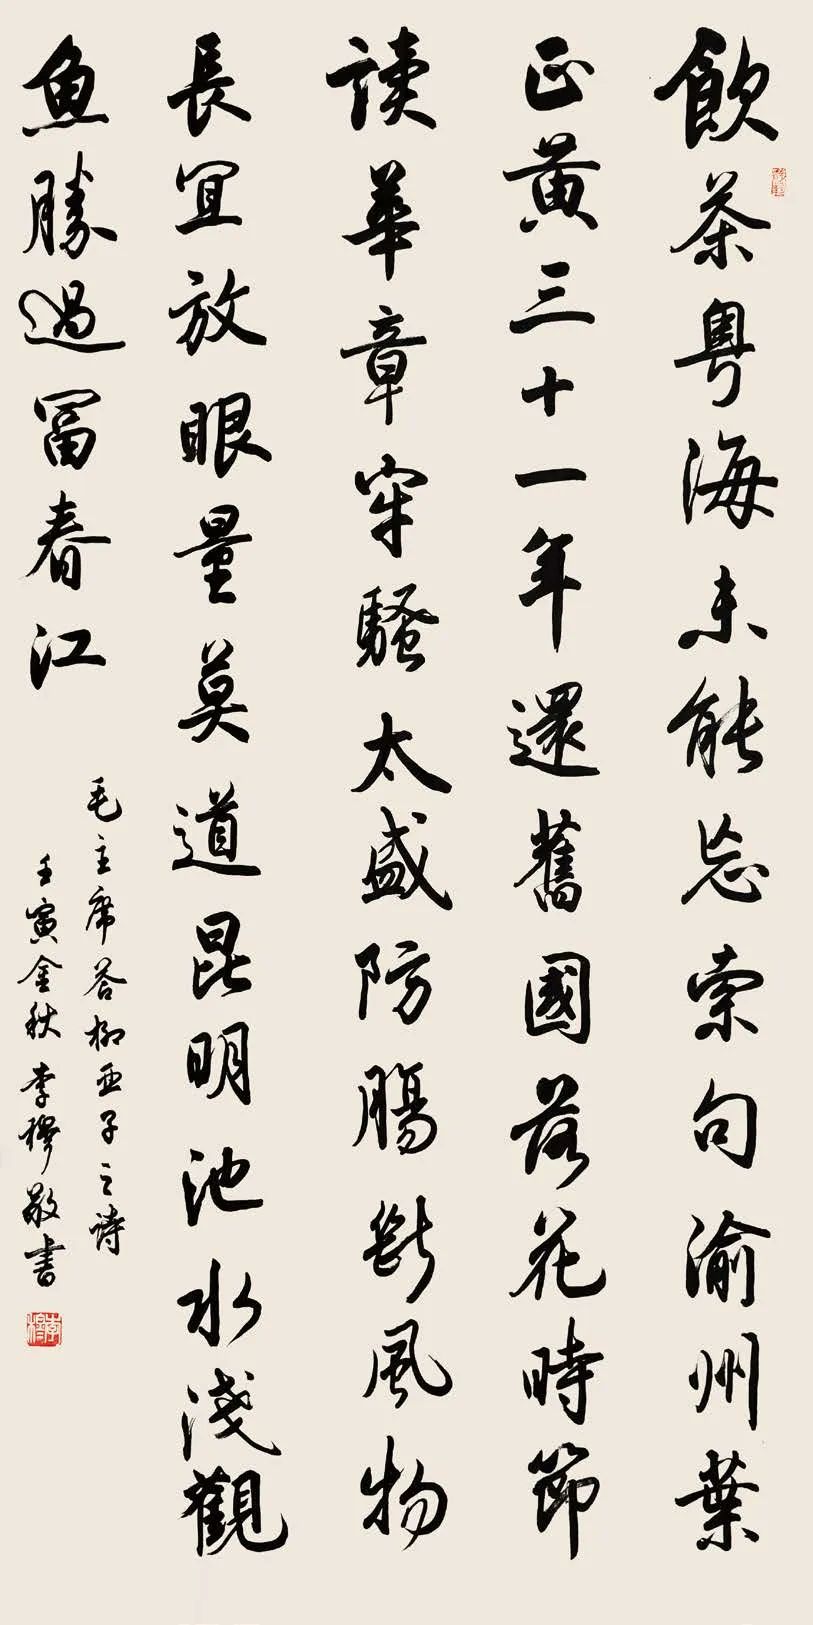 飲茶粵海未能忘索句渝州葉
正黃三十一年還舊國落花時節
讀華章牢騷太盛防腸斷風物
長宜放眼量莫道昆明池水淺觀
魚勝過富春江
毛主席答柳亞子之詩
壬寅金秋李穆敬書
李穆